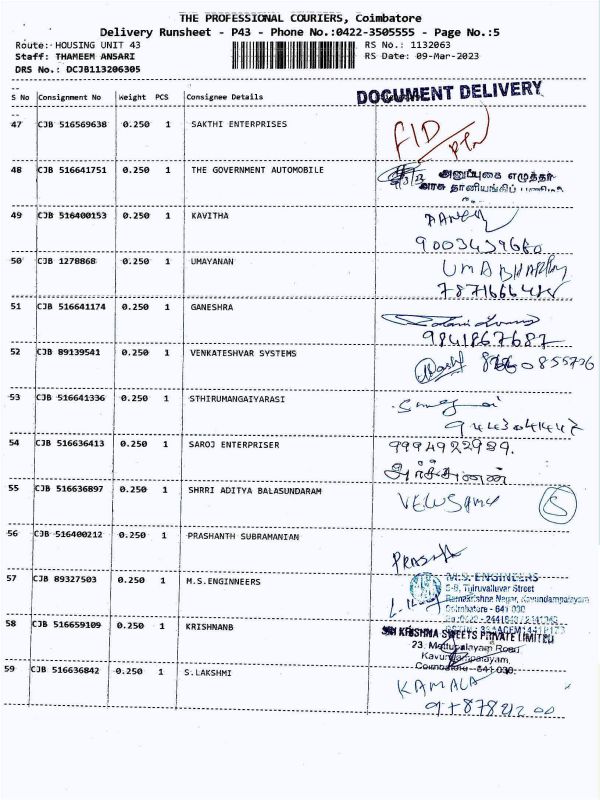 THE PROFESSIONAL COURIERS, Coimbatore
Delivery Runsheet - P43 - Phone No.:0422-3505555 - Page No.:5
Route: HOUSING UNIT 43 RS No.: 1132063
Staff: THAMEEM ANSARI RS Date: 09-Mar-2023
DRS No.: DCJB113206305
DOCUMENT DELIVERY
S No Consignment No Weight PCS Consignee Details
47 CJB 516569638 0.250 1 SAKTHI ENTERPRISES
48 CJB 516641751 0.250 1 THE GOVERNMENT AUTOMOBILE
அனுப்புகை எழுத்தர்
அரசு தானியங்கிப்
49 CJB 516400153 0.250 1 KAVITHA
50 CJB 1278868 0.250 1 UMAYANAN
51 CJB 516641174 0.250 1 GANESHRA
9841867687
52 CJB 89139541 0.250 1 VENKATESHVAR SYSTEMS
53 CJB 516641336 0.250 1 STHIRUMANGAIYARASI
54 CJB 516636413 0.250 1 SAROJ ENTERPRISER
55 CJB 516636897 0.250 1 SHRRI ADITYA BALASUNDARAM
VELUSAMY
56 CJB 516400212 0.250 1 PRASHANTH SUBRAMANIAN
57 CJB 89327503 0.250 1 M.S.ENGINNEERS
M.S. ENGINEERS
Thiruvalluvar Street
Ramakrishna Nagar, Kavundampalayam
Coimbatore - 641 030
58 CJB 516659109 0.250 1 KRISHNANB
SRI KRISHNA SWEETS PRIVATE LIMITED
23, Mettupalayam Road
Kavundampalayam,
Coimbatore - 641 030.
59 CJB 516636842 0.250 1 S.LAKSHMI
KAMALA